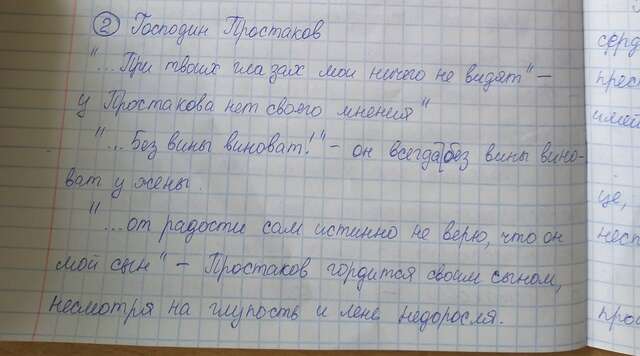 ② Господин Простаков
"...При твоих глазах мои ничего не видят" –
у Простакова нет своего мнения"
"...Без вины виноват!" – он всегда без вины вино-
ват у жены.
"...от радости сам истинно не верю, что он
мой сын" – Простаков гордится своим сыном,
несмотря на глупость и лень недоросля.